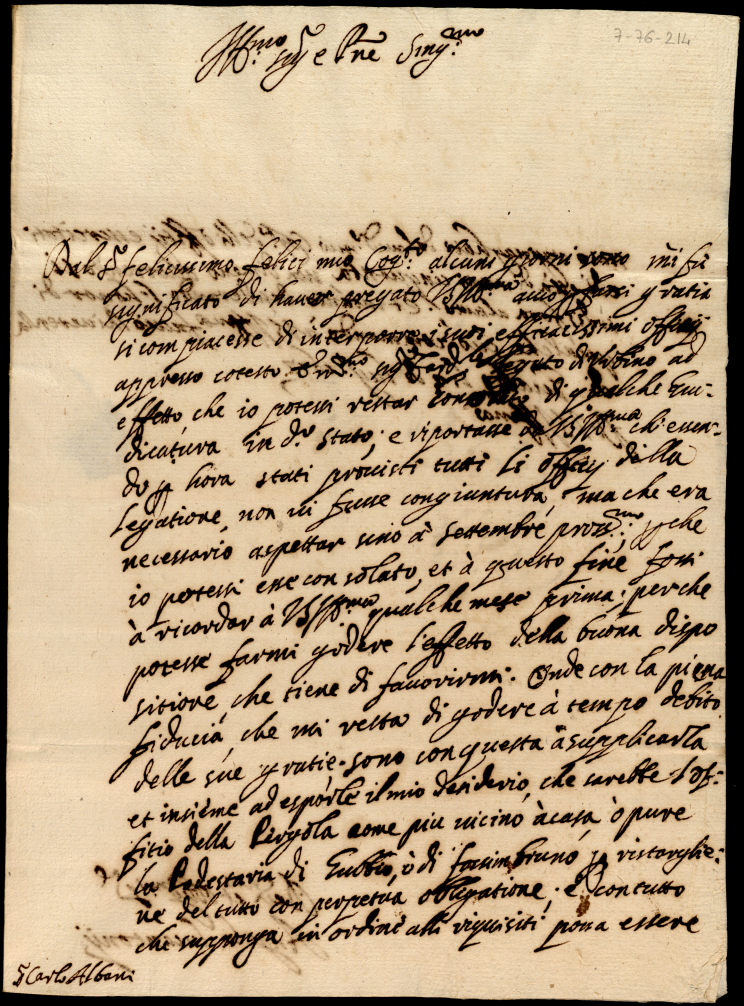 7-76-214
Ill.mo Sig.r e P.ne Sing.mo
Dal S.r felicissimo felici mio Cog.to alcuni giorni sono mi fù
significato di haver pregato VSIll.ma acciò farsi gratia
si compiacesse di interporre i suoi efficacissimi officij
appresso cotesto Em.mo Sig.r Card.le legato di Urbino ad
effetto, che io potessi restar consolato di qualche Giu-
dicatura in d.o stato; e riportasse da VSIll.ma ch'essen-
do p hora stati provisti tutti li officij della
legatione, non vi fusse congiuntura, ma che era
necessario aspettar sino à settembre pross.mo, p che
io potessi esse consolato, et à questo fine fossi
à ricordar à VSIll.ma qualche mese prima; perche
potesse farmi godere l'effetto della buona dispo
sitione, che tiene di favorirmi. Onde con la piena
fiducia, che mi resta di godere à tempo debito
delle sue gratie, sono con questa à supplicarla
et insieme ad esporle il mio desiderio, che sarebbe l'of-
fitio della Pergola come piu vicino à casa, ò pure
la Podestaria di Gubbio, ò di fossimbruno, p restarglie-
ne del tutto con perpetua obligatione; E con tutto
che supponga in ordine alli riquisiti, possa essere
S Carlo Albani